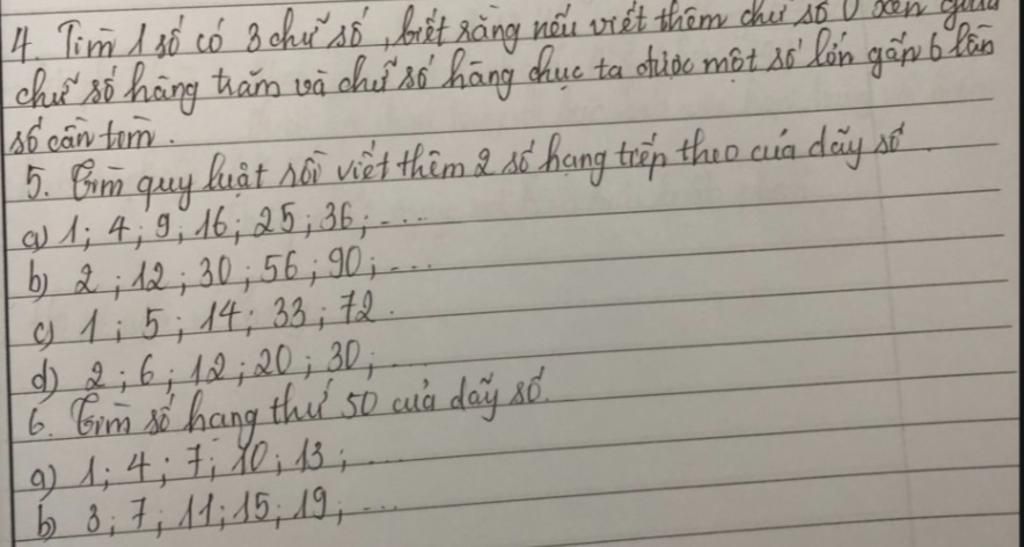 4. Tìm 1 số có 3 chữ số, biết rằng nếu viết thêm chữ số 0 xen giữa
chữ số hàng trăm và chữ số hàng chục ta được một số lớn gấp 6 lần
số cần tìm.
5. Tìm quy luật rồi viết thêm 2 số hạng tiếp theo của dãy số.
a) 1; 4; 9; 16; 25; 36; ....
b) 2; 12; 30; 56; 90; ....
c) 1; 5; 14; 33; 72.
d) 2; 6; 12; 20; 30; ....
6. Tìm số hạng thứ 50 của dãy số.
a) 1; 4; 7; 10; 13; ....
b) 3; 7; 11; 15; 19; ....